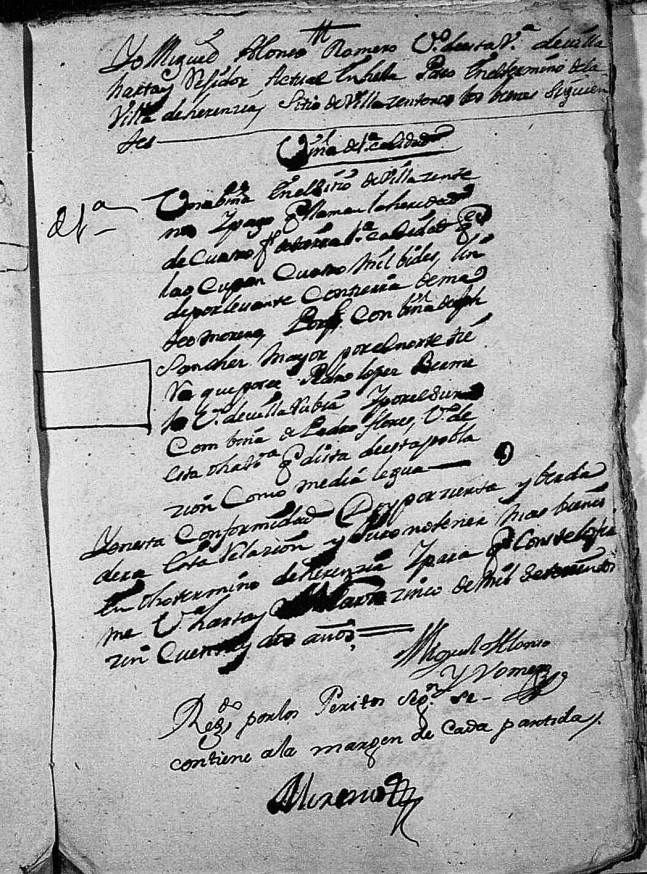 Yo Miguel Alonso Romero Vº. de esta Vª. de villa
harta y Rejidor Actual en hella Poseo en el termino de la
Villa de herenzia, Sitio de Villazentenos los bienes siguien
tes
Viña de 1ª calidad
Una biña en el sitio de Villazente
nos Y pago q llaman la heredad
de Cuatro fs 1ª calidad q
la ocupan Cuatro mil bides, lin
de por levante Con tierra de ma
teo moreno, Con biña de
Sanchez mayor por el norte tie
rra que posee Pedro lopez Berme
jo Vº. de villa Rubia Y por el sur
Con biña de Pedro flores, Vº. de
esta dha Vª q dista de esta pobla
zión Como media legua
Y en esta Conformidad Doy por zierta y berda
dera esta Relazión y Juro no tener mas bienes
en dho termino de herenzia Y para q Conste lo fir
me Vª. harta y Marzo zinco de mil setezientos
zin Cuenta y dos años
Miguel Alonso
Y Romero
Regdo por los Peritos Segn. se
contiene a la margen de Cada partida
Moreno